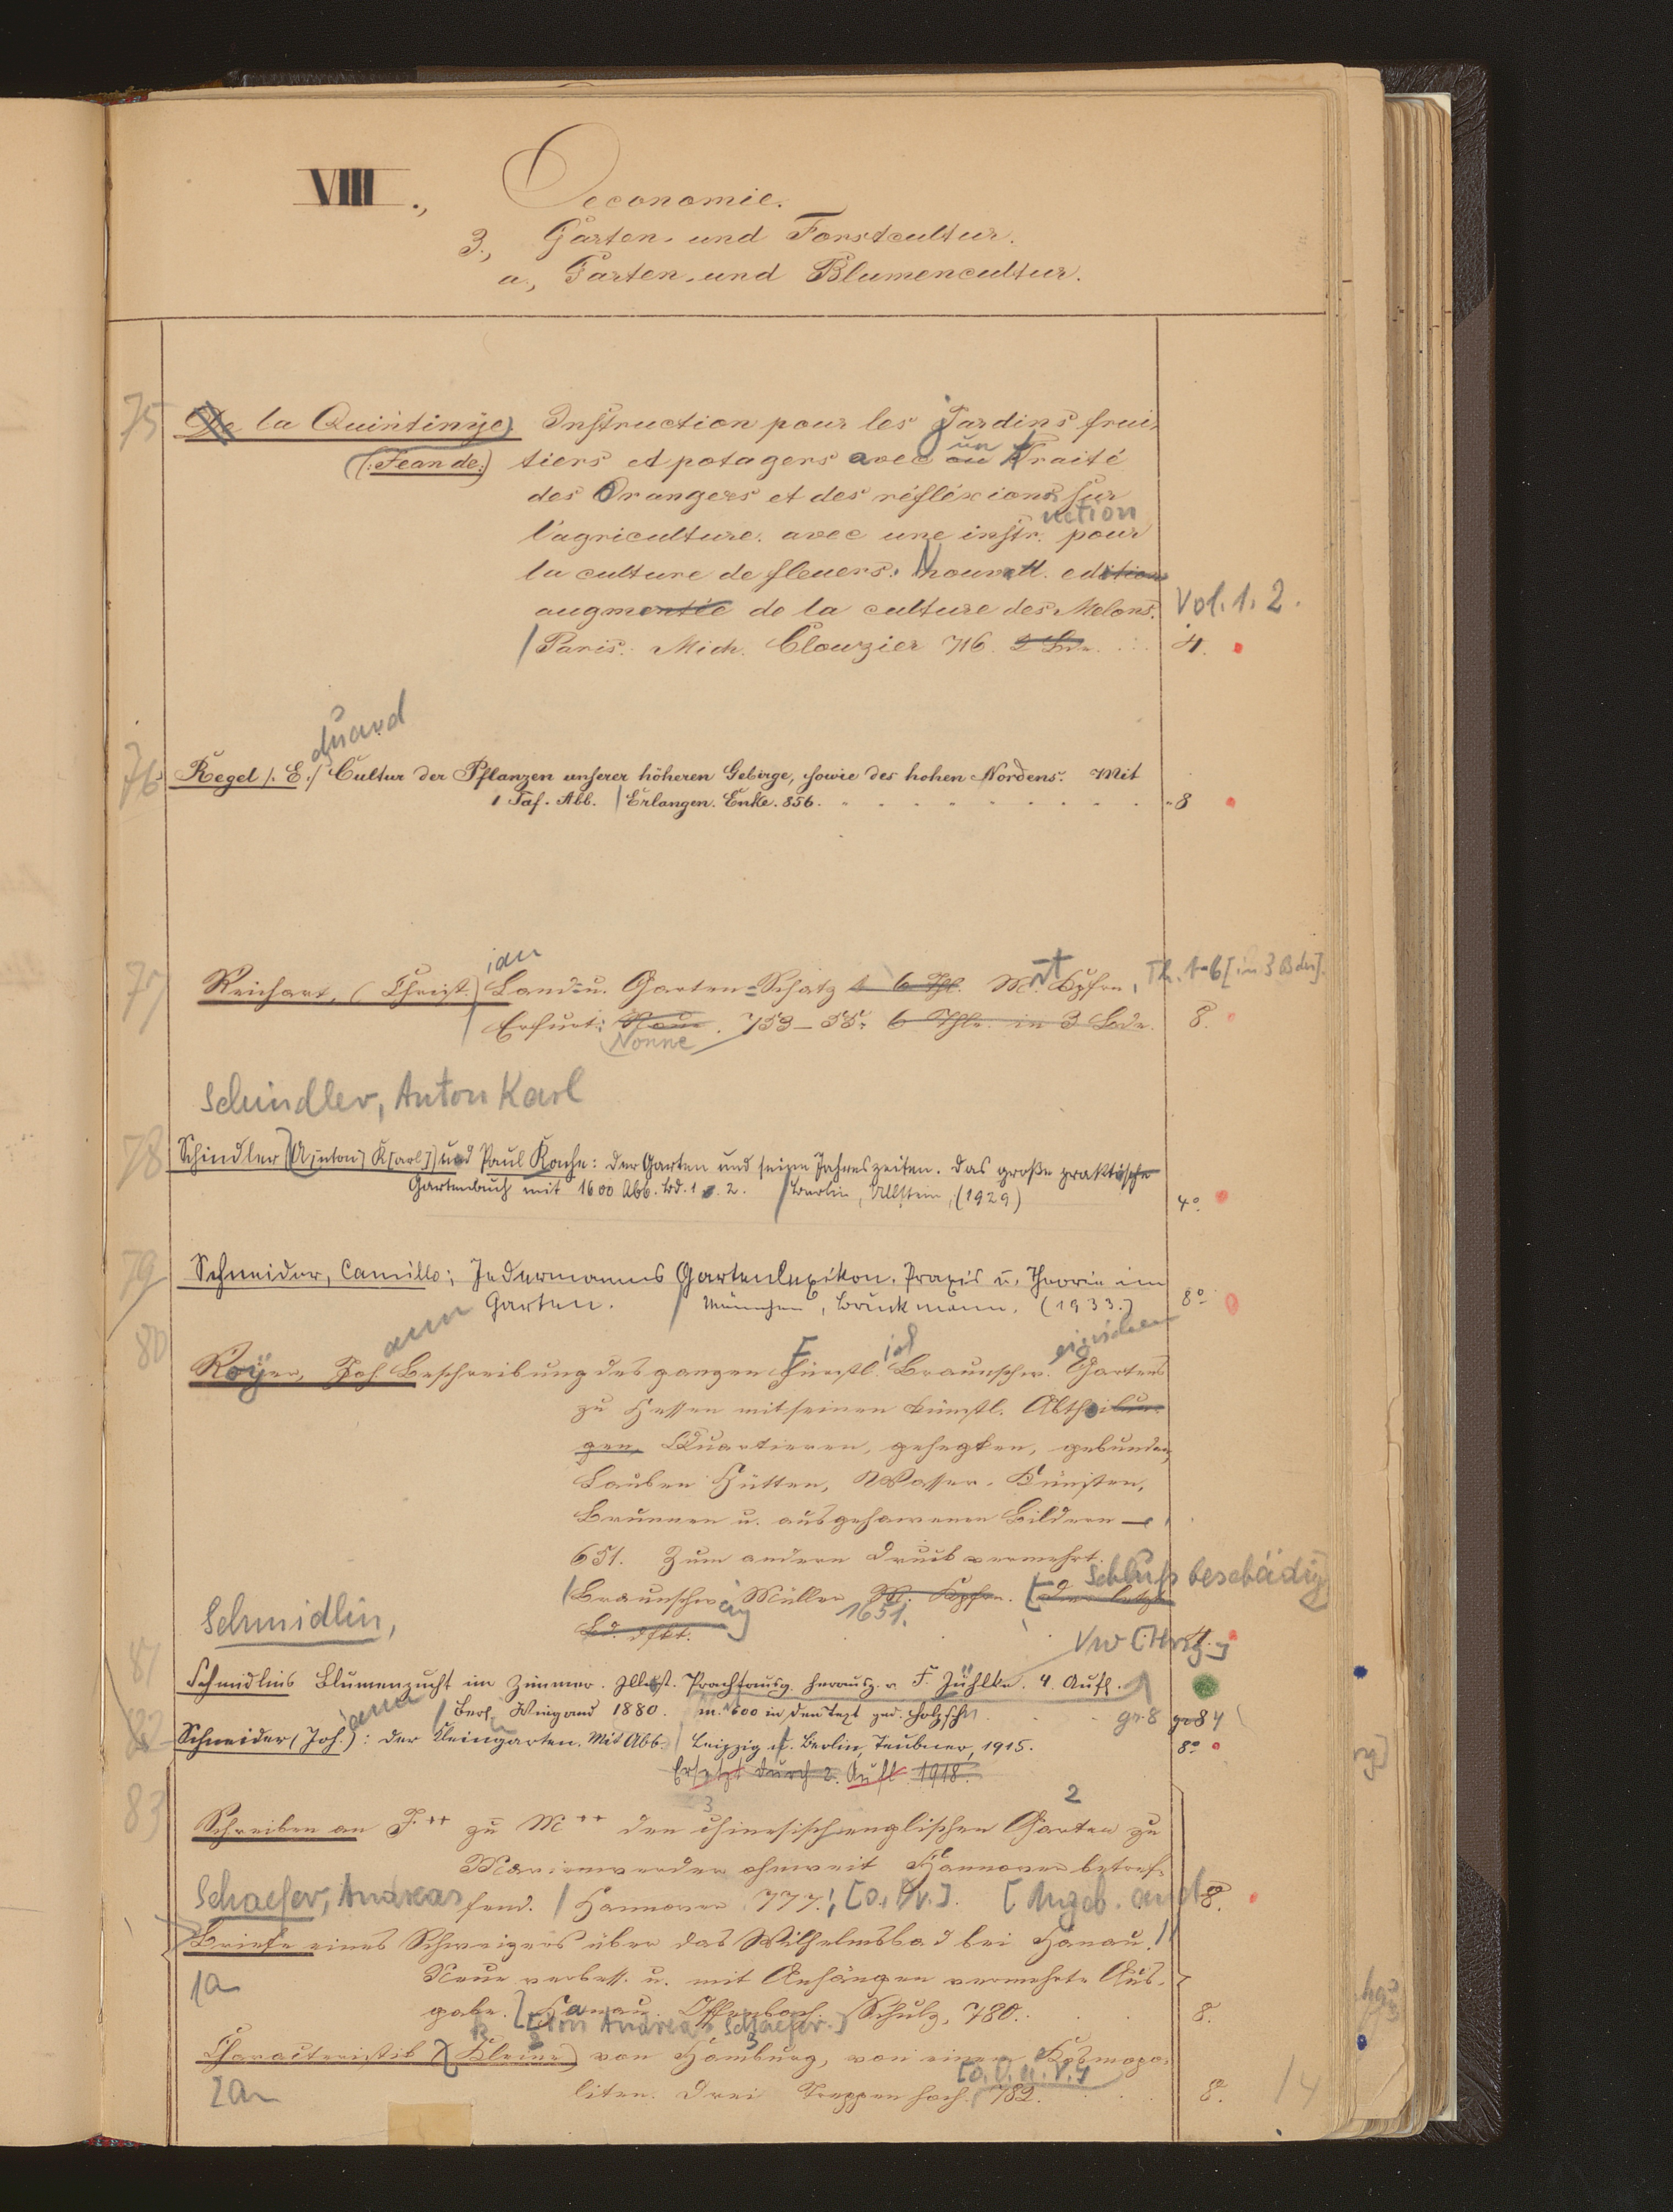 VIII., Oeconomie.
3., Garten- und Forstcultur.
a., Garten- und Blumencultur.
75 De la Quintinije) Instruction pour les jardins frui-
(:Jean de:) tiers et potagers avec un Traité
des Orangers et des réfléxions sur
l'agriculture. avec une instr. uction pour
la culture de fleuers. Nouvell. edition
augmentée de la culture des Melons. Vol. 1. 2.
Paris. Mich. Clouzier 716. 2 Bde. 4.
duard
76 Regel /. E./ Cultur der Pflanzen unserer höheren Gebirge, sowie des hohen Nordens. Mit
1 Taf. Abb. | Erlangen. Enke. 856. 8
ian
77 Reichart, (Christ.) Land- u. Garten-Schatz 6 Thl. Mit Kpfrn. Th. 1-6 [in 3 Bdn].
Erfurt: 753-55. 6 Thle. in 3 Bde. 8.
Nonne
Schindler, Anton Karl
78 Schindler, A[nton] K[arl] und Paul Kache: Der Garten und seine Jahreszeiten. Das große praktische
Gartenbuch mit 1600 Abb. Bd. 1 u. 2. / Berlin, Ullstein, (1929) 4°
79 Schneider, Camillo; Jedermanns Gartenlexikon. Praxis u. Theorie im
Garten. / München, Bruckmann. (1933.) 8°
ann ich eigischen
80 Royer, Joh. Beschreibung des ganzen Fürstl. Braunschw. Gartens
zu Hessen mit seinen künstl. Abtheilun-
gen Quartieren, gehegken, gebunden
Lauben Hütten, Wasser-Künsten,
Brunnen u. ausgehawenen Bildern
651. Zum andern Druck vermehrt.
Schluß beschädig
/Braunschweig Müller M. Kpfrn. [das letzte
1651.
Bd. dfkt.] 4.
Schmidlin,
Vw [Hrsg.]
81 Schmidlins Blumenzucht im Zimmer. Illust. Prachtausg. herausg. v. F. Jühlke. 4. Aufl.
/ Berl. Wiegand 1880. m. 600 in den Text ged. Holzschn. gr. 8 gr 8 4
ann
82 Schneider (Joh.): Der Kleingarten. Mit Abb. / Leipzig u. Berlin, Teubner, 1915. 8°
Ersetzt durch 2. Aufl. 1918.
3 2
83 Schreiben an J.** zu M** den chinesisch englischen Garten zu
Marienwerder ohnweit Hannover betref-
fend. / Hannover 777.; [o. Dr.]. [Angeb. and 8.
Schaefer, Andreas
Briefe eines Schweizers über das Wilhelmsbad bei Hanau.
Neue verbess. u. mit Anhängen vermehrte Aus-
1a
gabe. Hanau. Offenbach. Schulz, 780. 8.
[Von Andreas Schaefer.]
Characteristik (Kleine) von Hamburg, von einem Kosmopo-
[o. O. u. V.]
2a liten. Drei Treppen hoch. 782. 8.
14